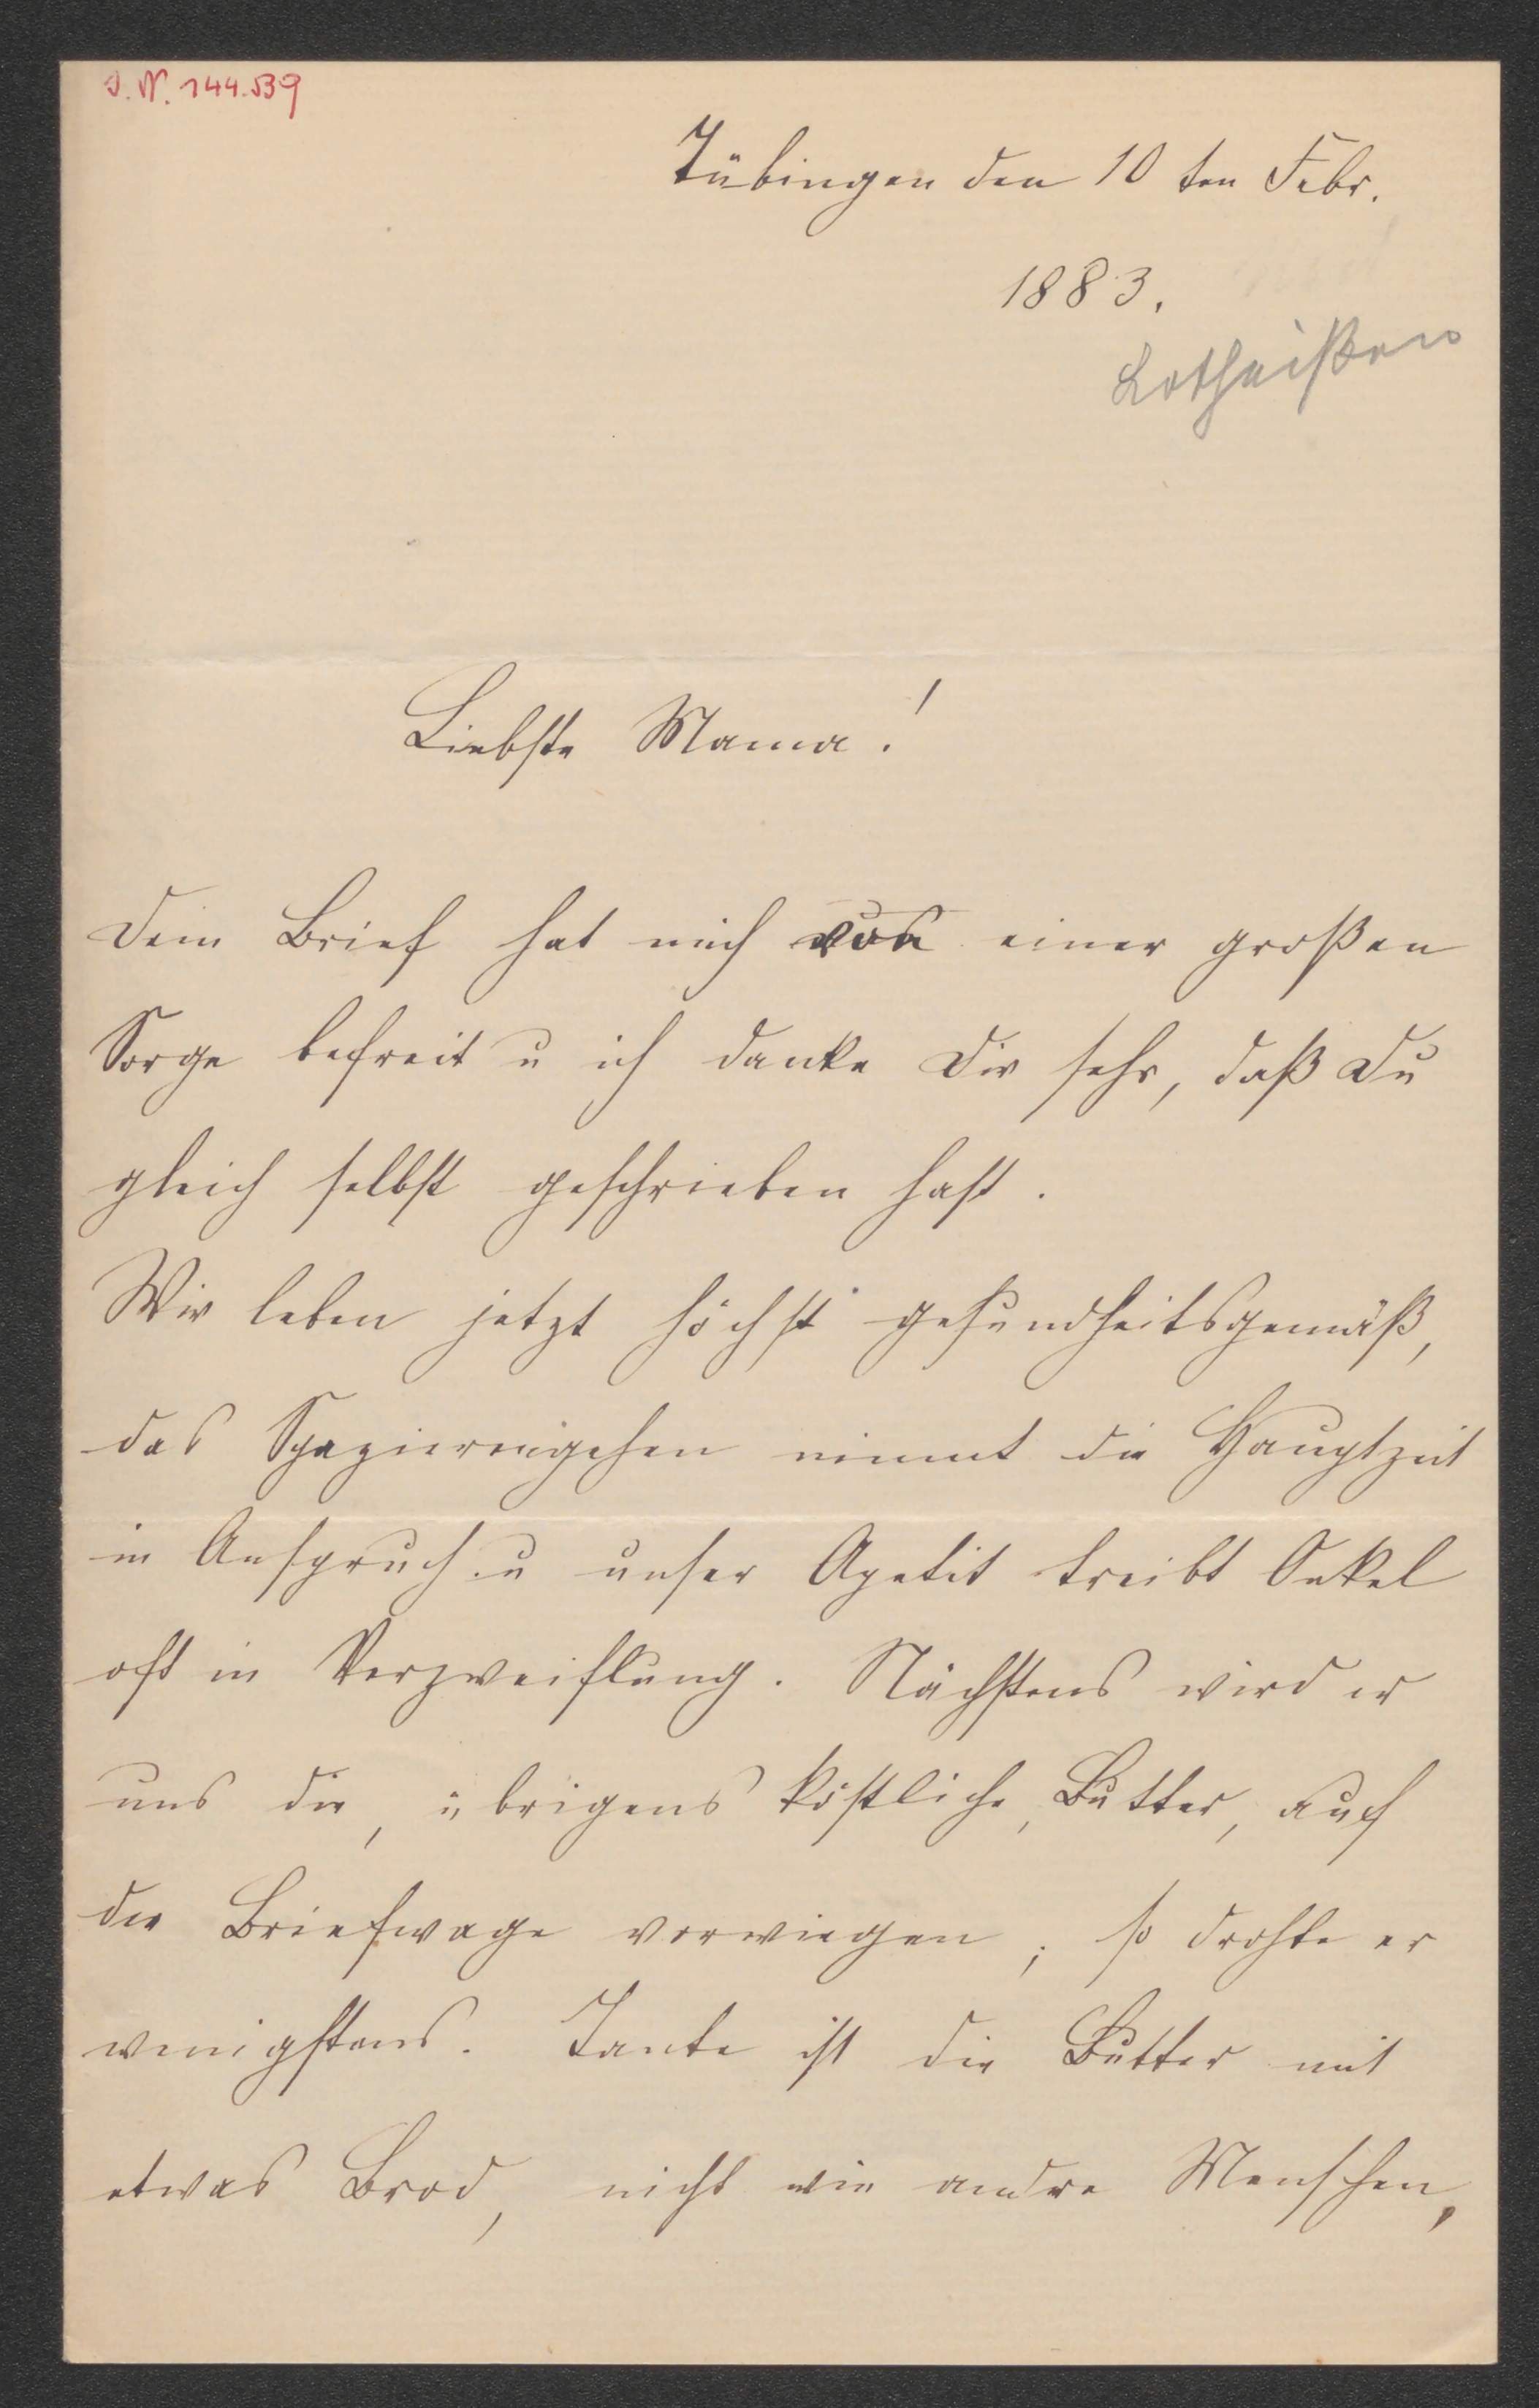 I.N. 144.539
Tübingen den 10 ten Febr.
1883.
Lotheißen
Liebste Mama!
Dein Brief hat mich von einer großen
Sorge befreit u ich danke Dir sehr, daß Du
gleich selbst geschrieben hast.
Wir leben jetzt höchst gesundheitsgemäß,
das Spazierengehen nimmt die Hauptzeit
in Anspruch u unser Apetit treibt Onkel
oft in Verzweiflung. Nächstens wird er
uns die, übrigens köstliche, Butter, auf
der Briefwage vorwiegen; so drohte er
wenigstens. Tante ist die Butter mit
etwas Brod, nicht wie andre Menschen,